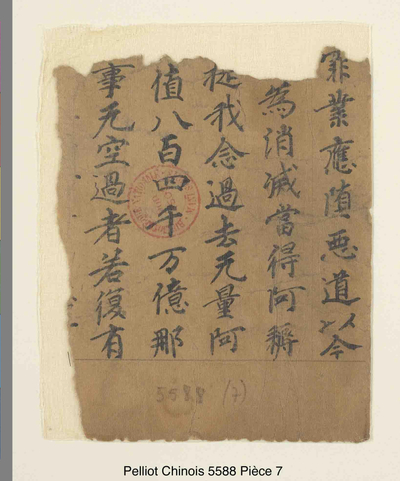 罪業應堕惡道以今
為消滅當得阿耨
提我念過去无量阿
值八百四千万億那
事无空過者若復有
5588 (7)
Pelliot Chinois 5588 Pièce 7